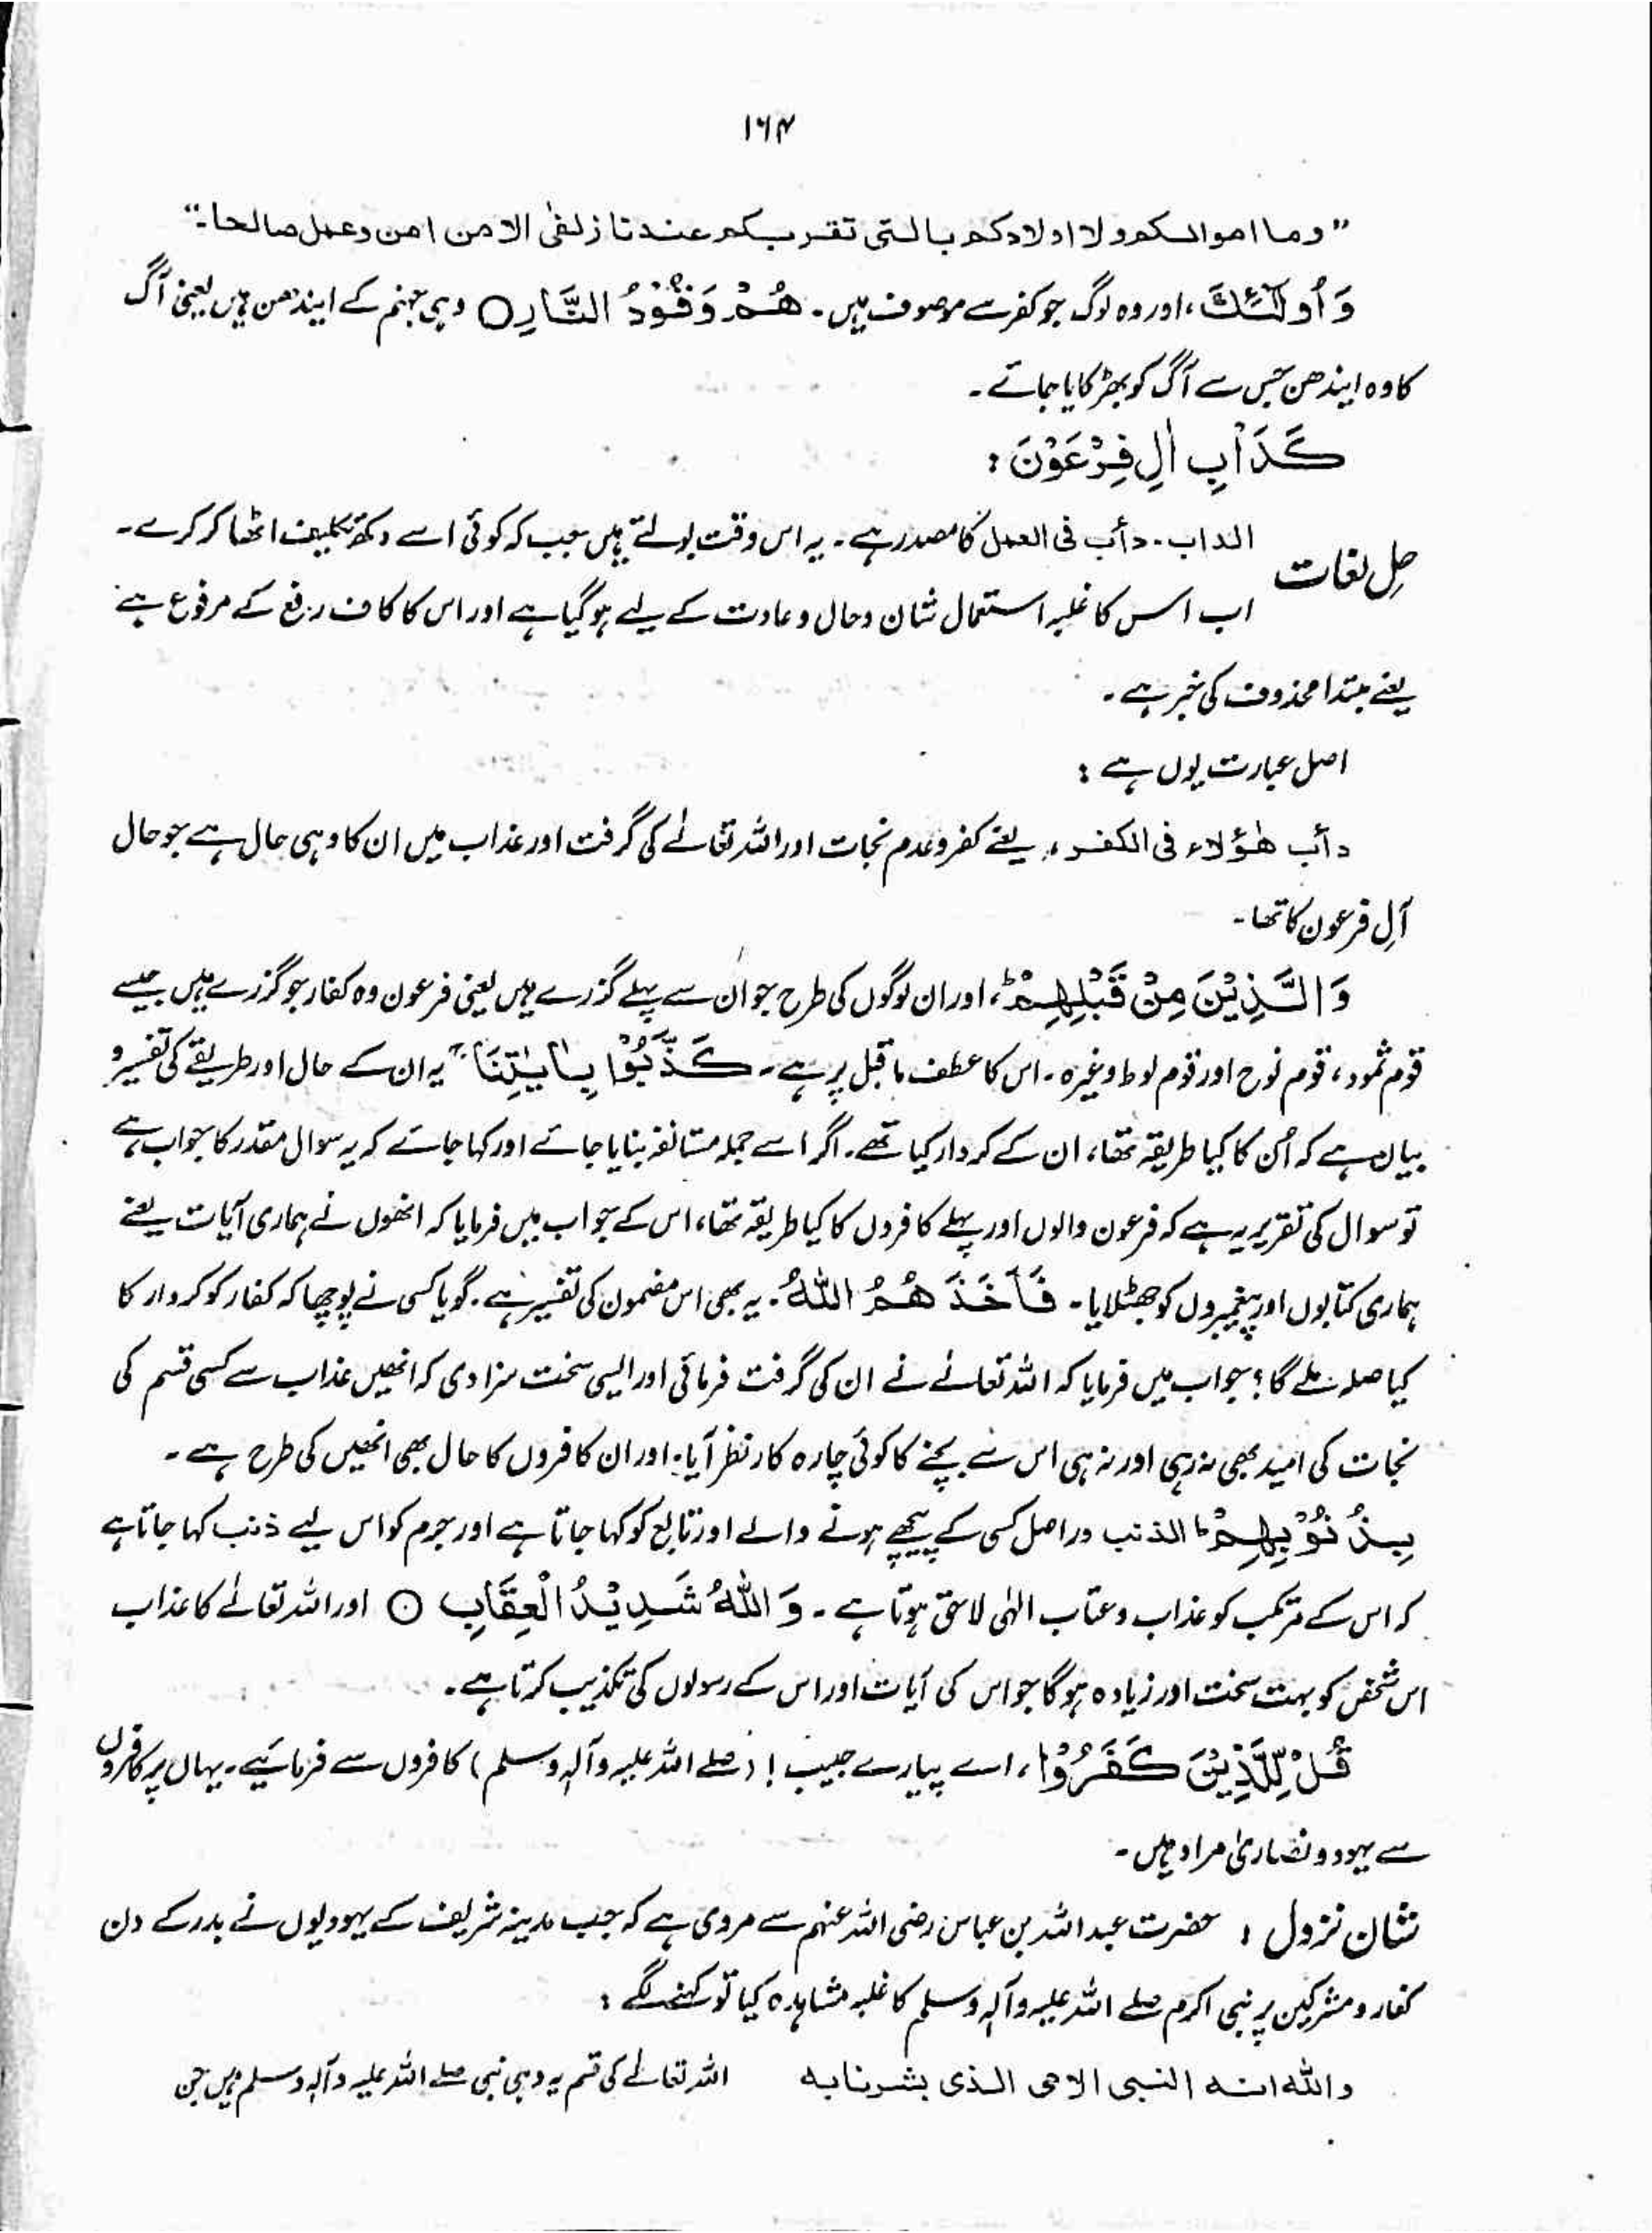 ۱۶۴
”وما اموالکم ولا اولادکم بالتی تقربکم عندنا زلفیٰ الا من امن وعمل صالحا۔“
وَاُولٰٓئِكَ، اور وہ لوگ جو کفر سے موصوف ہیں۔ هُمْ وَقُوْدُ النَّارِ ○ وہی جہنم کے ایندھن ہیں یعنی آگ
کا وہ ایندھن جس سے آگ کو بھڑکایا جائے۔
كَدَاْبِ اٰلِ فِرْعَوْنَ :
حل لغات
الداب۔ دأب فی العمل کا مصدر ہے۔ یہ اس وقت بولتے ہیں جب کہ کوئی اسے دکھ تکلیف اٹھا کر کرے۔
اب اس کا غلبہ استعمال شان وحال وعادت کے لیے ہو گیا ہے اور اس کا کاف رفع کے مرفوع ہے
یعنے مبتدا محذوف کی خبر ہے۔
اصل عبارت یوں ہے :
دأب هٰؤلاء فی الکفر، یعنے کفر وعدم نجات اور اللہ تعالےٰ کی گرفت اور عذاب میں ان کا وہی حال ہے جو حال
آلِ فرعون کا تھا۔
وَالَّذِيْنَ مِنْ قَبْلِهِمْ ؕ، اور ان لوگوں کی طرح جو ان سے پہلے گزرے ہیں یعنی فرعون وہ کفار جو گزرے ہیں جیسے
قوم ثمود، قوم نوح اور قوم لوط وغیرہ۔ اس کا عطف ماقبل پر ہے۔ كَذَّبُوْا بِاٰيٰتِنَا ۚ یہ ان کے حال اور طریقے کی تفسیر و
بیان ہے کہ اُن کا کیا طریقہ تھا، ان کے کردار کیا تھے۔ اگر اسے جملہ مستانفہ بنایا جائے اور کہا جائے کہ یہ سوال مقدر کا جواب ہے
تو سوال کی تقریر یہ ہے کہ فرعون والوں اور پہلے کافروں کا کیا طریقہ تھا، اس کے جواب میں فرمایا کہ انھوں نے ہماری آیات یعنے
ہماری کتابوں اور پیغمبروں کو جھٹلایا۔ فَاَخَذَهُمُ اللّٰهُ۔ یہ بھی اس مضمون کی تفسیر ہے۔ گویا کسی نے پوچھا کہ کفار کو کردار کا
کیا صلہ ملے گا؟ جواب میں فرمایا کہ اللہ تعالےٰ نے ان کی گرفت فرمائی اور ایسی سخت سزا دی کہ انھیں عذاب سے کسی قسم کی
نجات کی امید بھی نہ رہی اور نہ ہی اس سے بچنے کا کوئی چارہ کار نظر آیا۔ اور ان کافروں کا حال بھی انھیں کی طرح ہے۔
بِذُنُوْبِهِمْ ؕ الذنب دراصل کسی کے پیچھے ہونے والے اور تابع کو کہا جاتا ہے اور جرم کو اس لیے ذنب کہا جاتا ہے
کہ اس کے مرتکب کو عذاب وعتاب الہٰی لاحق ہوتا ہے۔ وَاللّٰهُ شَدِيْدُ الْعِقَابِ ○ اور اللہ تعالےٰ کا عذاب
اس شخص کو بہت سخت اور زیادہ ہوگا جو اس کی آیات اور اس کے رسولوں کی تکذیب کرتا ہے۔
قُلْ لِّلَّذِيْنَ كَفَرُوْا، اے پیارے حبیب ! (صلے اللہ علیہ وآلہٖ وسلم) کافروں سے فرمائیے۔ یہاں پر کافروں
سے یہود و نصاریٰ مراد ہیں۔
شان نزول : حضرت عبداللہ بن عباس رضی اللہ عنہم سے مروی ہے کہ جب مدینہ شریف کے یہودیوں نے بدر کے دن
کفار و مشرکین پر نبی اکرم صلے اللہ علیہ وآلہٖ وسلم کا غلبہ مشاہدہ کیا تو کہنے لگے :
واللّٰہ انہ النبی الامی الذی بشرنا بہ اللہ تعالےٰ کی قسم یہ وہی نبی صلے اللہ علیہ وآلہٖ وسلم ہیں جن